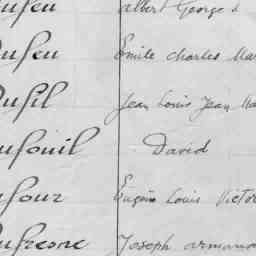 ufeu albert George
ufeu Emile Charles Mar
ufil Jean Louis Jean Ma
ufouil David
ufour Eugène Louis Victo
ufresne Joseph armand